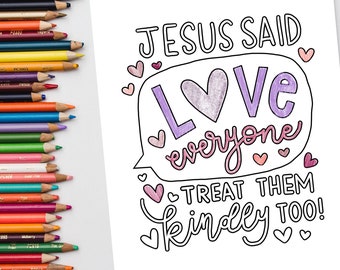 JESUS SAID
LOVE
everyone
TREAT THEM
kindly TOO!